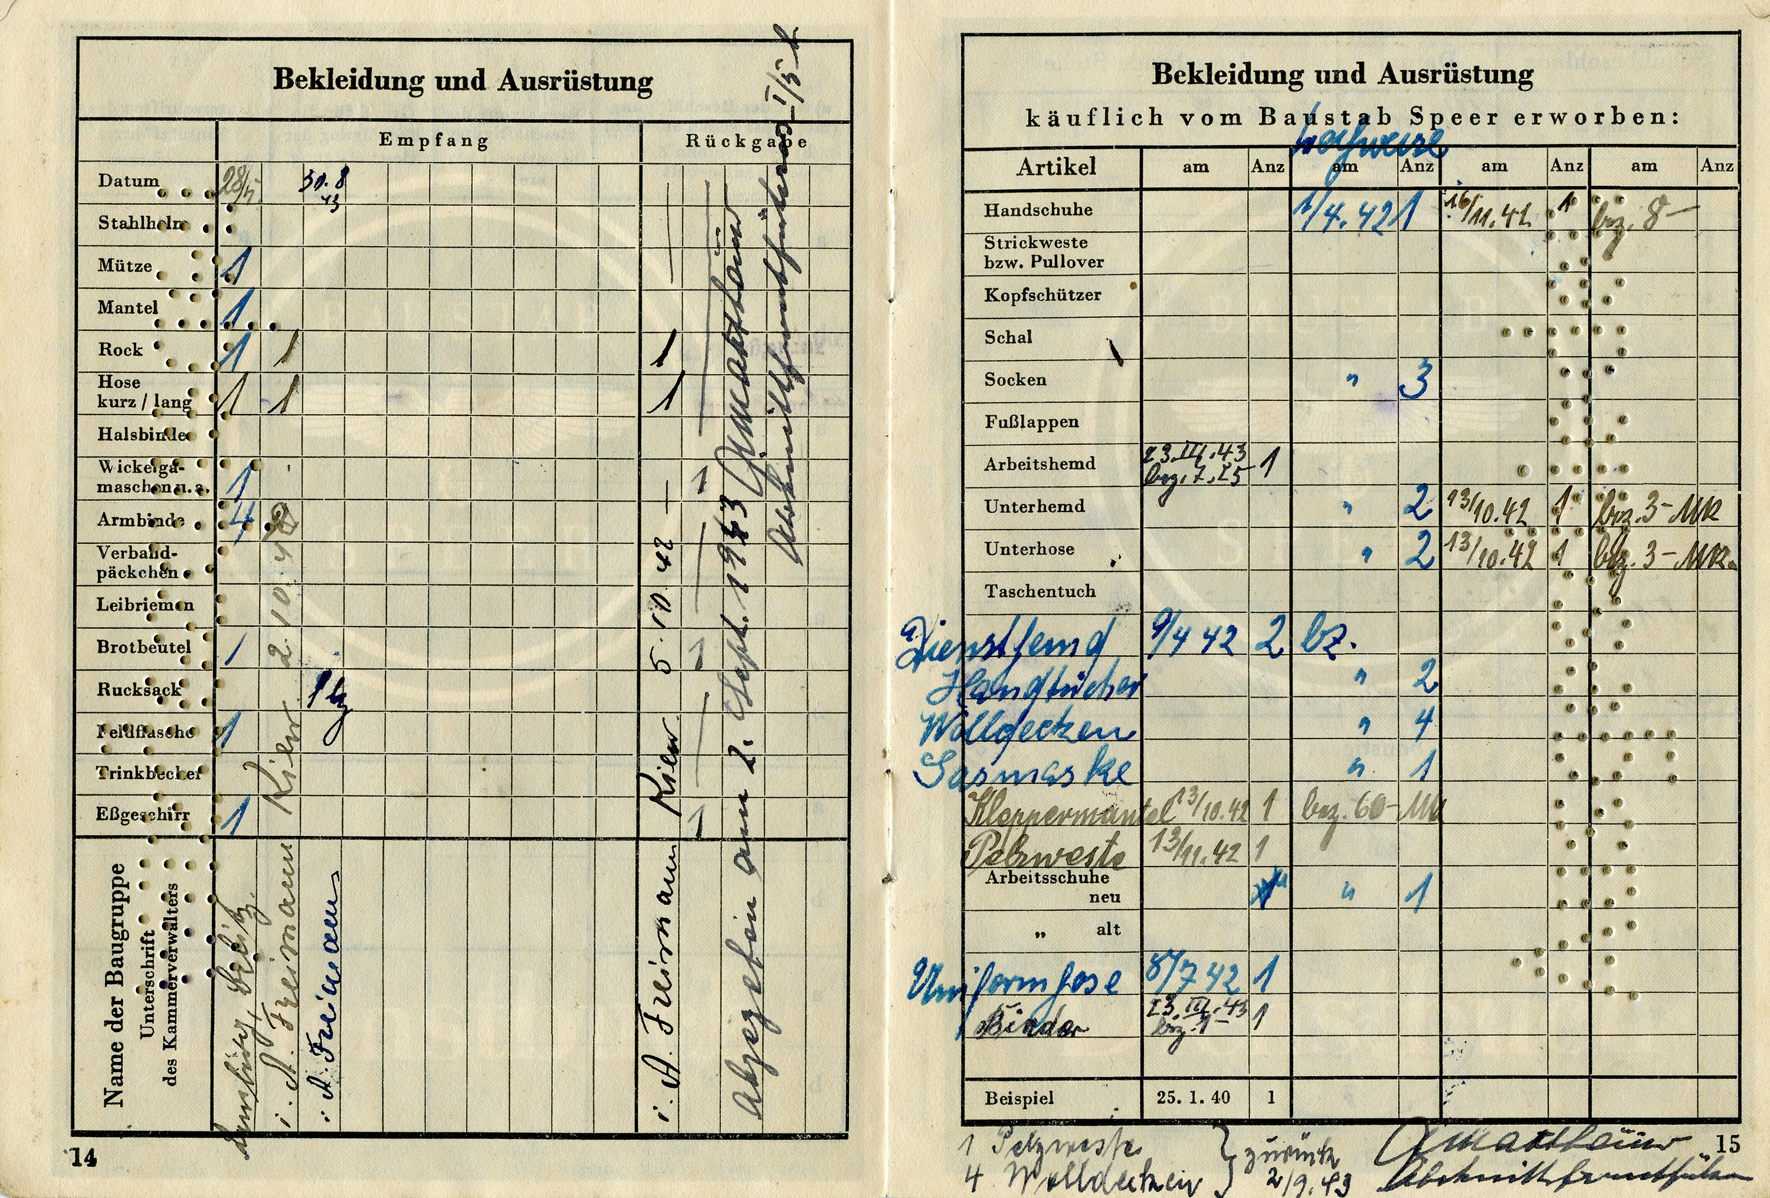 Bekleidung und Ausrüstung
Empfang Rückgabe
Datum 28/5. 30.8 43
Stahlhelm
Mütze 1
Mantel 1
Rock 1 1 1
Hose
kurz / lang 1 1 1
Halsbinde
Wickelga-
maschen u. a. 1 1
Armbinde 4
Verband-
päckchen
Leibriemen
Brotbeutel 1 1
Rucksack 1
Feldflasche 1
Trinkbecher
Eßgeschirr 1 1
Name der Baugruppe
Unterschrift
des Kammerverwalters
i. A. Freimann Kiew 2.10.42
i. A. Freimann
i. A. Freimann Kiew 5.10.42
Abgegeben am 2. Sept. 1943
14
Bekleidung und Ausrüstung
käuflich vom Baustab Speer erworben:
leihweise
Artikel am Anz am Anz am Anz am Anz
Handschuhe 1/4.42 1 16/11.42 1 bez. 8 —
Strickweste
bzw. Pullover
Kopfschützer
Schal
Socken " 3
Fußlappen
Arbeitshemd 23.III.43 1
bez. 7.25
Unterhemd " 2 13/10.42 1 bez. 3 - Mk
Unterhose " 2 13/10.42 1 bez. 3 - Mk.
Taschentuch
Diensthemd 9/4 42 2 bz.
Handtücher " 2
Wolldecken " 4
Gasmaske " 1
Kleppermantel 13/10.42 1 bez. 60 - Mk
Pelzweste 13/11.42 1
Arbeitsschuhe
neu " 1
„ alt
Uniformhose 8/7 42 1
Binder 23.III.43 1
bez. 1 —
Beispiel 25. 1. 40 1
1 Pelzweste
4 Wolldecken } zurück
2/9.43
Abschnittsfrontführer
15